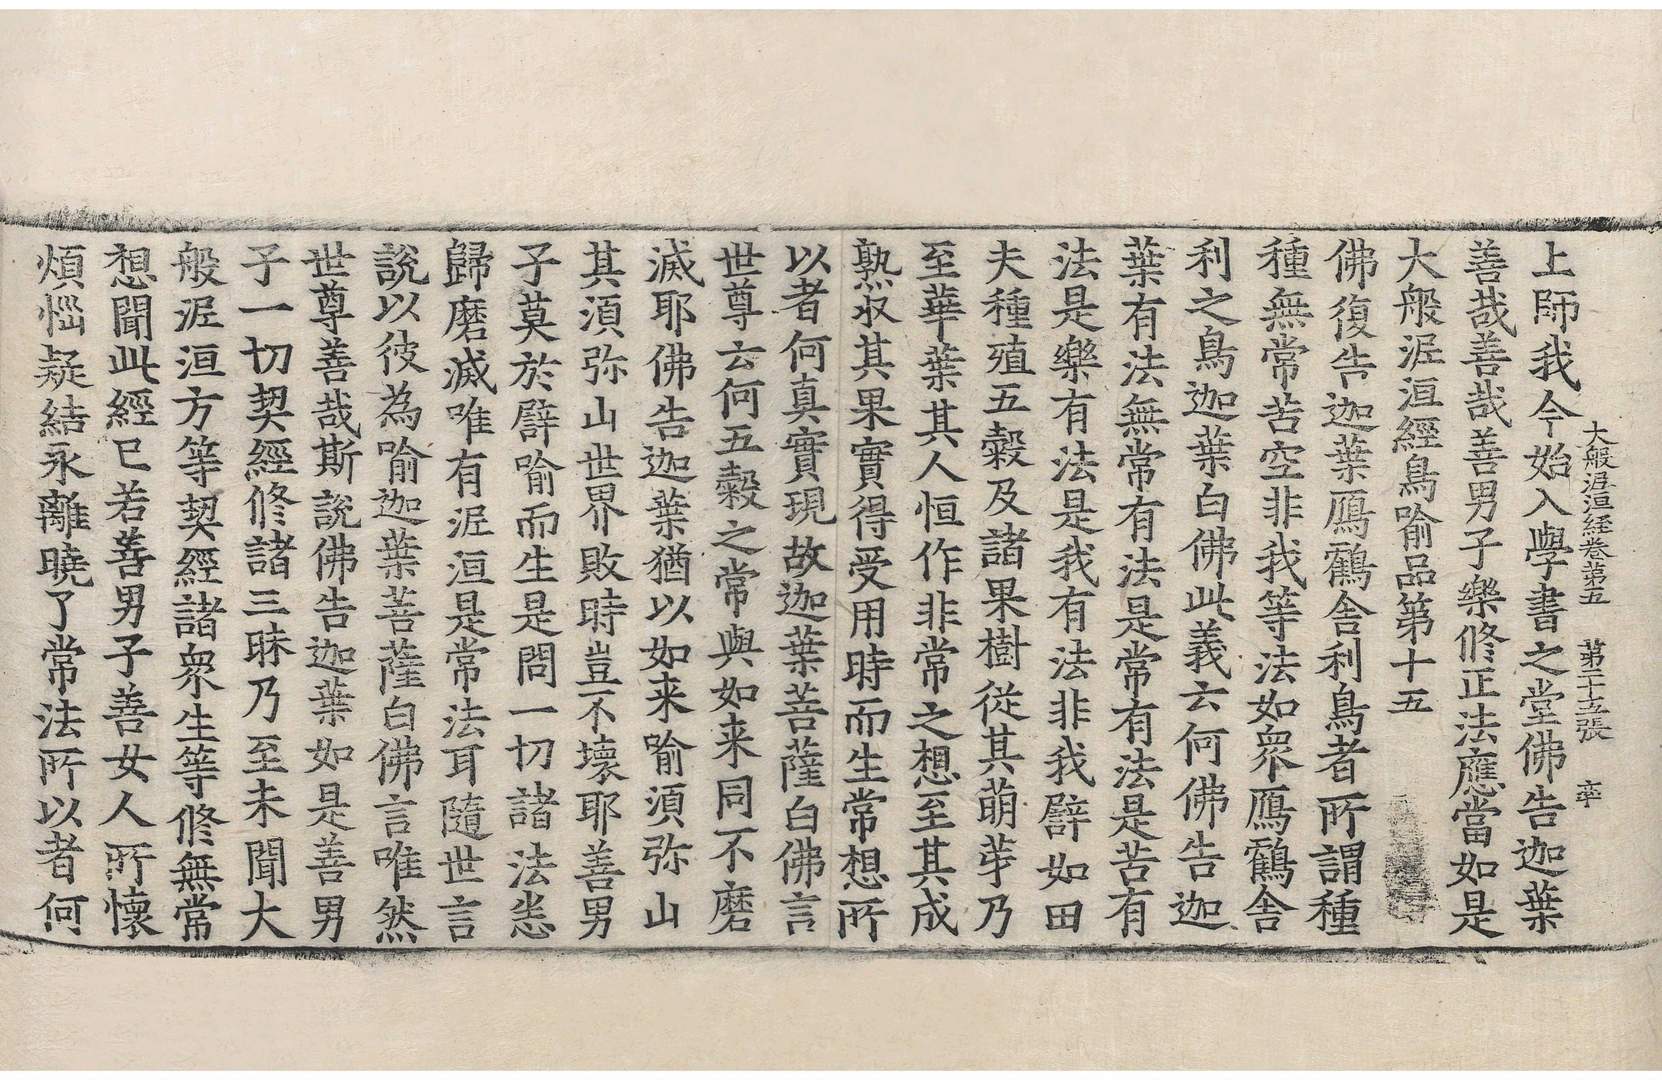 大般泥洹經卷第五　第二十五張　率
上師我今始入學書之堂佛告迦葉
善哉善哉善男子樂修正法應當如是
大般泥洹經鳥喻品第十五
佛復告迦葉鴈鶴舍利鳥者所謂種
種無常苦空非我等法如衆鴈鶴舍
利之鳥迦葉白佛此義云何佛告迦
葉有法無常有法是常有法是苦有
法是樂有法是我有法非我譬如田
夫種殖五穀及諸果樹從其萌芽乃
至華葉其人恒作非常之想至其成
熟収其果實得受用時而生常想所
以者何真實現故迦葉菩薩白佛言
世尊云何五穀之常與如来同不磨
滅耶佛告迦葉猶以如来喻須弥山
其須弥山世界敗時豈不壞耶善男
子莫於譬喻而生是問一切諸法悉
歸磨滅唯有泥洹是常法耳隨世言
說以彼為喻迦葉菩薩白佛言唯然
世尊善哉斯說佛告迦葉如是善男
子一切契經修諸三昧乃至未聞大
般泥洹方等契經諸衆生等修無常
想聞此經已若善男子善女人所懷
煩惱疑結永離曉了常法所以者何